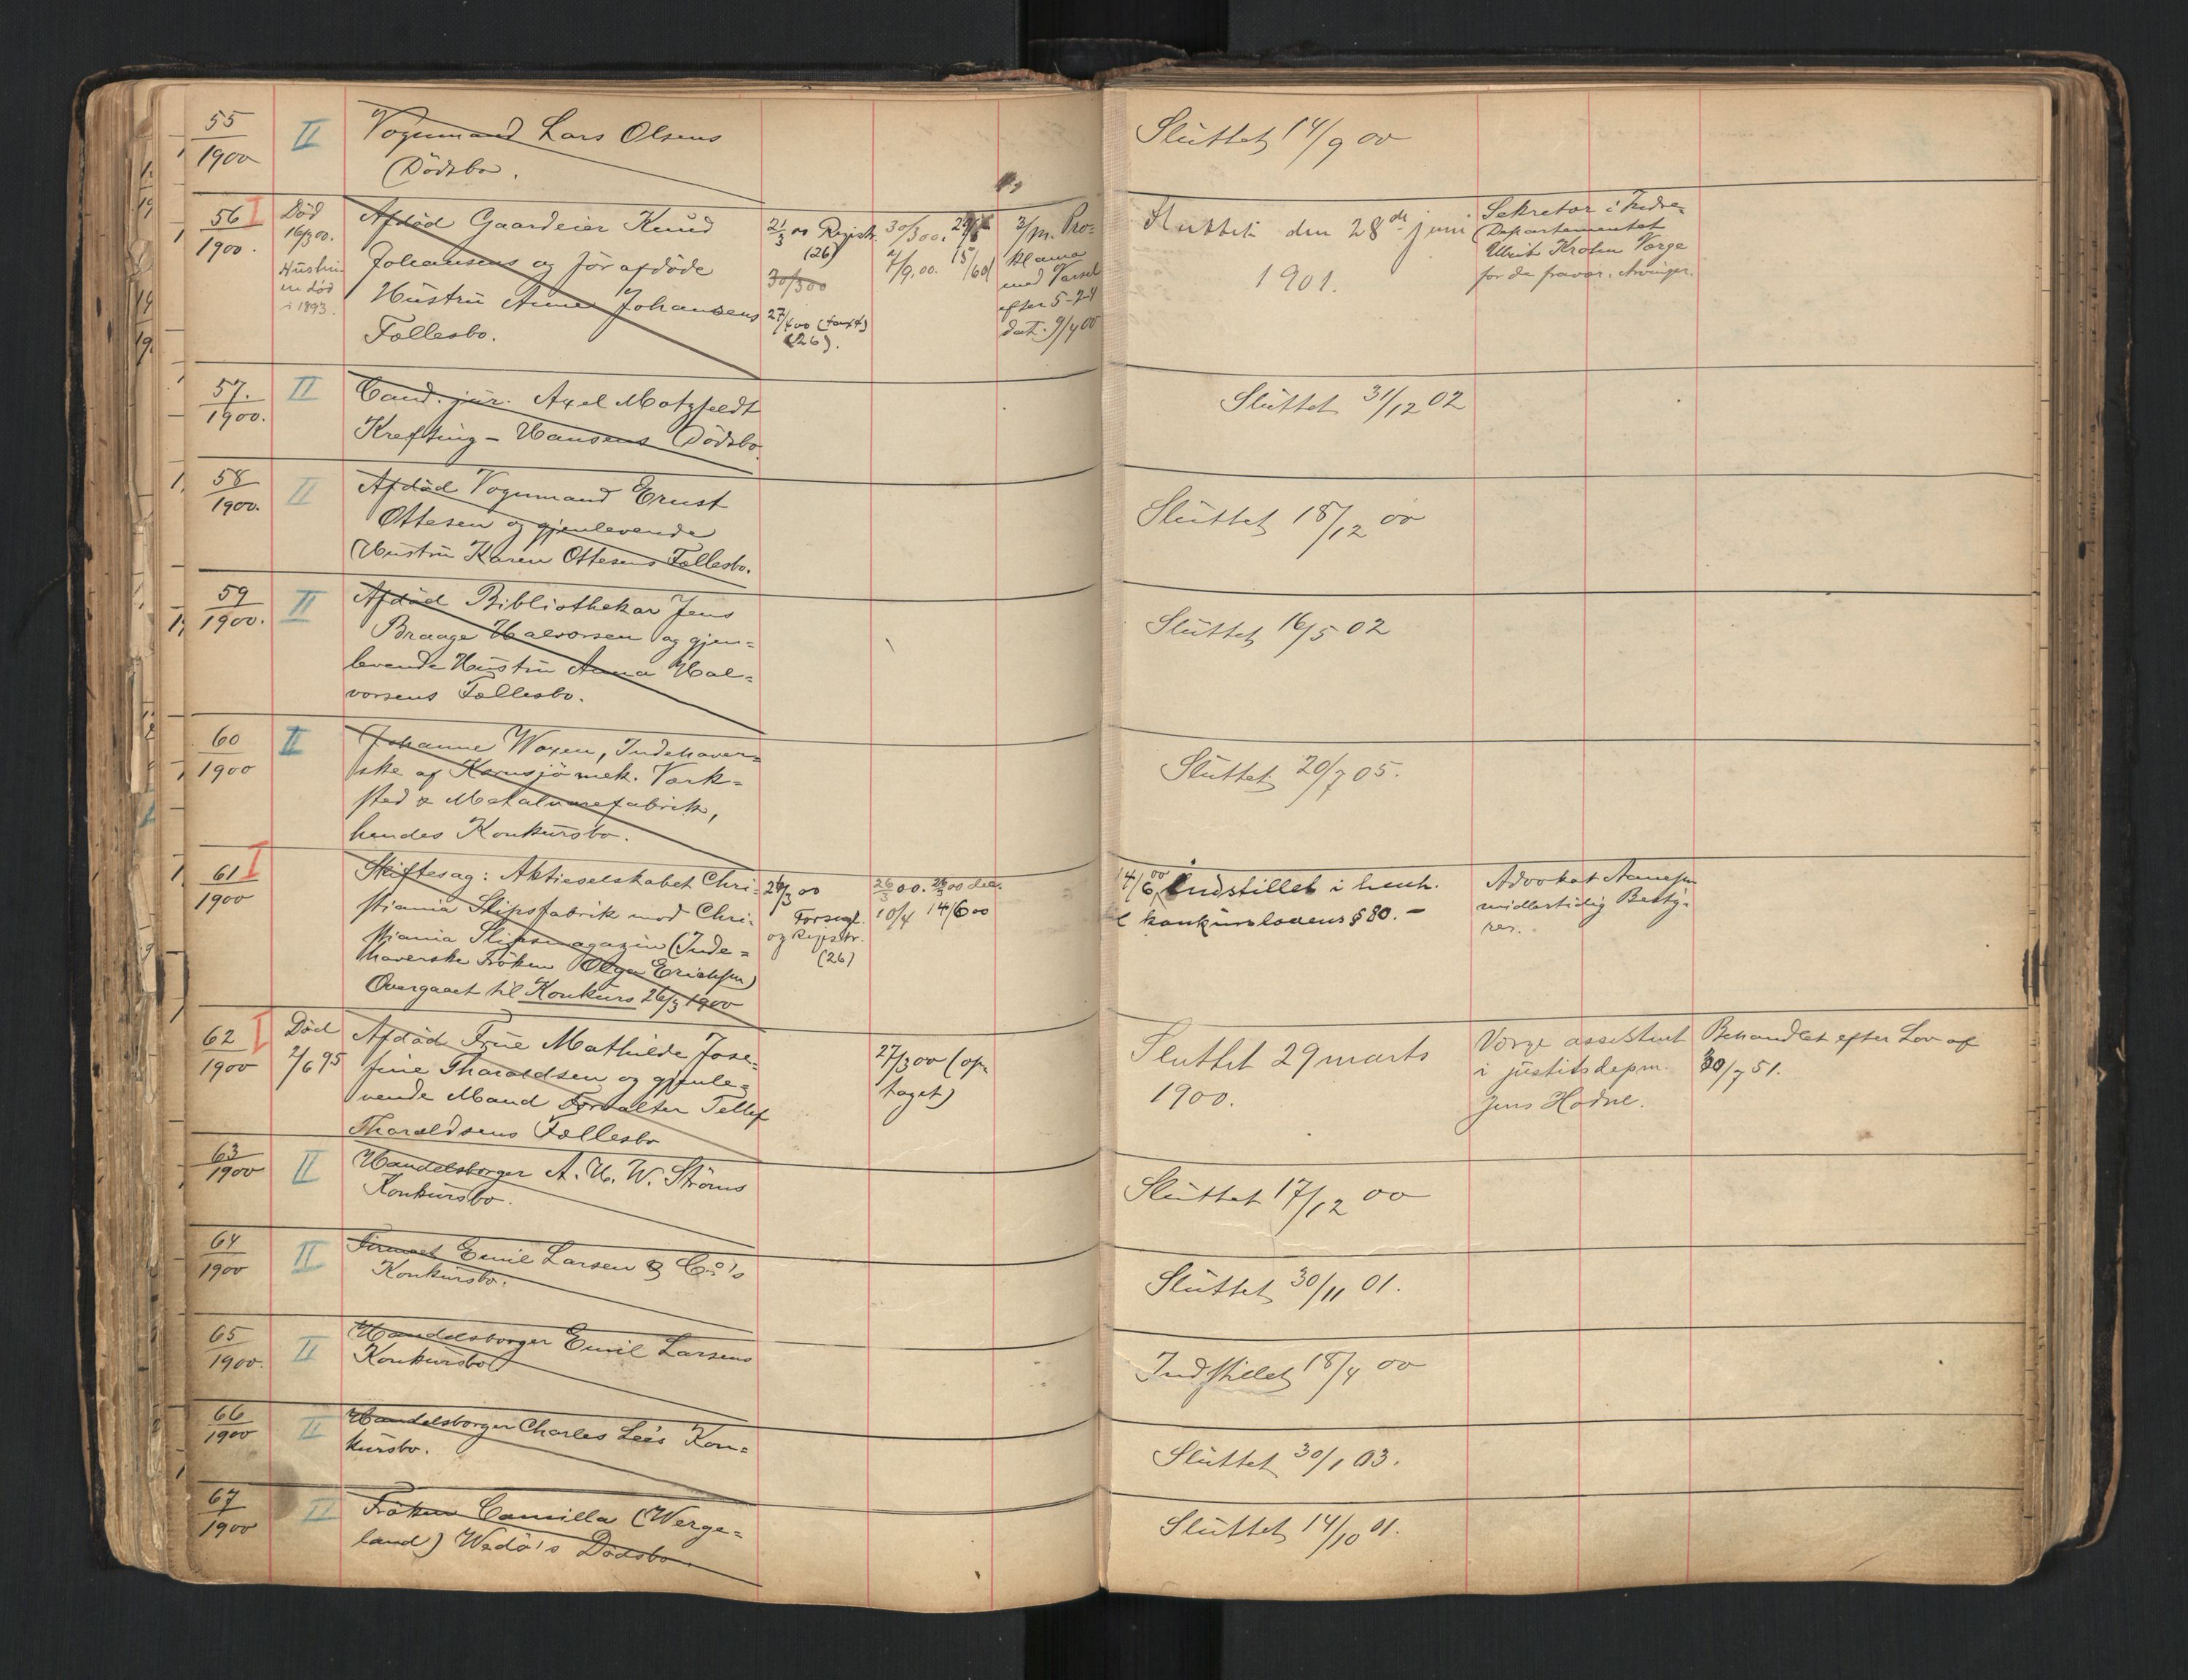 55
1900
II
Vognmand Lars Olsens
Dödsbo.
Sluttet 14/9 00
56 I
1900.
Död
16/3 00.
Hustru
en död
i 1893.
Afdöd Gaardeier Knud
Johansens og før afdöde
Hustru Anne Johansens
Fællesbo.
21/3 00 Registr.
(26)
30/3 00
27/4 00 (taxt)
(26).
30/3 00.
7/9.00.
3/m. Pro-
klama
med Varsel
efter 5-7-4
dat. 9/4 00
Sluttet den 28de juni
1901.
Sekretær i Indre-
Departementet
Ulrik Krohn Værge
for de fravær. Arvinger.
57.
1900.
II
Cand. jur. Axel Motzfeldt
Krefting-Hansens Dödsbo.
Sluttet 31/12 02
58
1900.
II
Afdöd Vognmand Ernst
Ottesen og gjenlevende
Hustru Karen Ottesens Fællesbo.
Sluttet 18/12 00
59
1900.
II
Afdöd Bibliothekar Jens
Braage Halvorsen og gjen-
levende Hustru Anna Hal-
vorsens Fællesbo.
Sluttet 16/5 02
60
1900
II
Johanne Waxen, Indehaver-
ske af Kornsjö mek. Værk-
sted & Metalvarefabrik,
hendes Konkursbo.
Sluttet 20/7 05.
61 I
1900
Skiftesag: Aktieselskabet Chri-
stiania Slipsfabrik mod Chri-
stiania Slipsmagazin (Inde-
haverske Fröken Olga Erichsen)
Overgaaet til Konkurs 26/3 1900
26/3 00
Forsegl.
og Registr.
(26)
26/3 00.
10/4 14/6 00
14/6 00 Indstillet i henh.
t konkurslovens § 80. -
Advokat Aanesen
midlertidig Besty-
rer.
62 I
1900
Död
2/6 95
Afdöd Frue Mathilde Jose-
fine Tharaldsen og gjenle-
vende Mand Forvalter Tellef
Tharaldsens Fællesbo
27/3 00 (op-
taget)
Sluttet 29 marts
1900.
Værge assistent
i justitsdepm.
Jens Hodne.
Behandlet efter Lov af
30/7 51.
63
1900
II
Handelsborger A. H. W. Ströms
Konkursbo.
Sluttet 17/12 00
64
1900
II
Firmaet Emil Larsen & Co's
Konkursbo.
Sluttet 30/11 01.
65
1900.
II
Handelsborger Emil Larsens
Konkursbo
Indstillet 18/4 00
66
1900
II
Handelsborger Charles Lee's Kon-
kursbo.
Sluttet 30/1 03.
67
1900
II
Fröken Camilla (Werge-
land) Wedö's Dödsbo.
Sluttet 14/10 01.